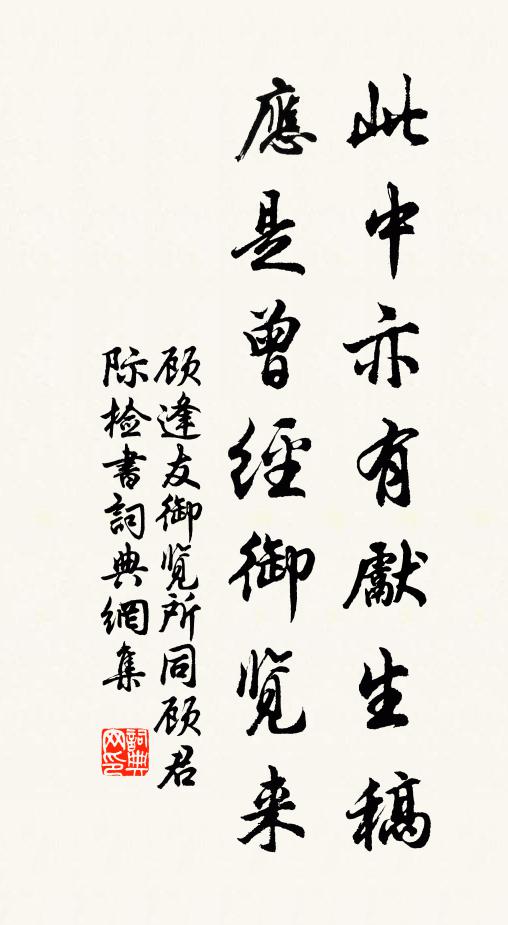 此中亦有獻生稿
應是曾經御览来
顾逢友御览所同顾君
际检書詞典網集
詞典
网印